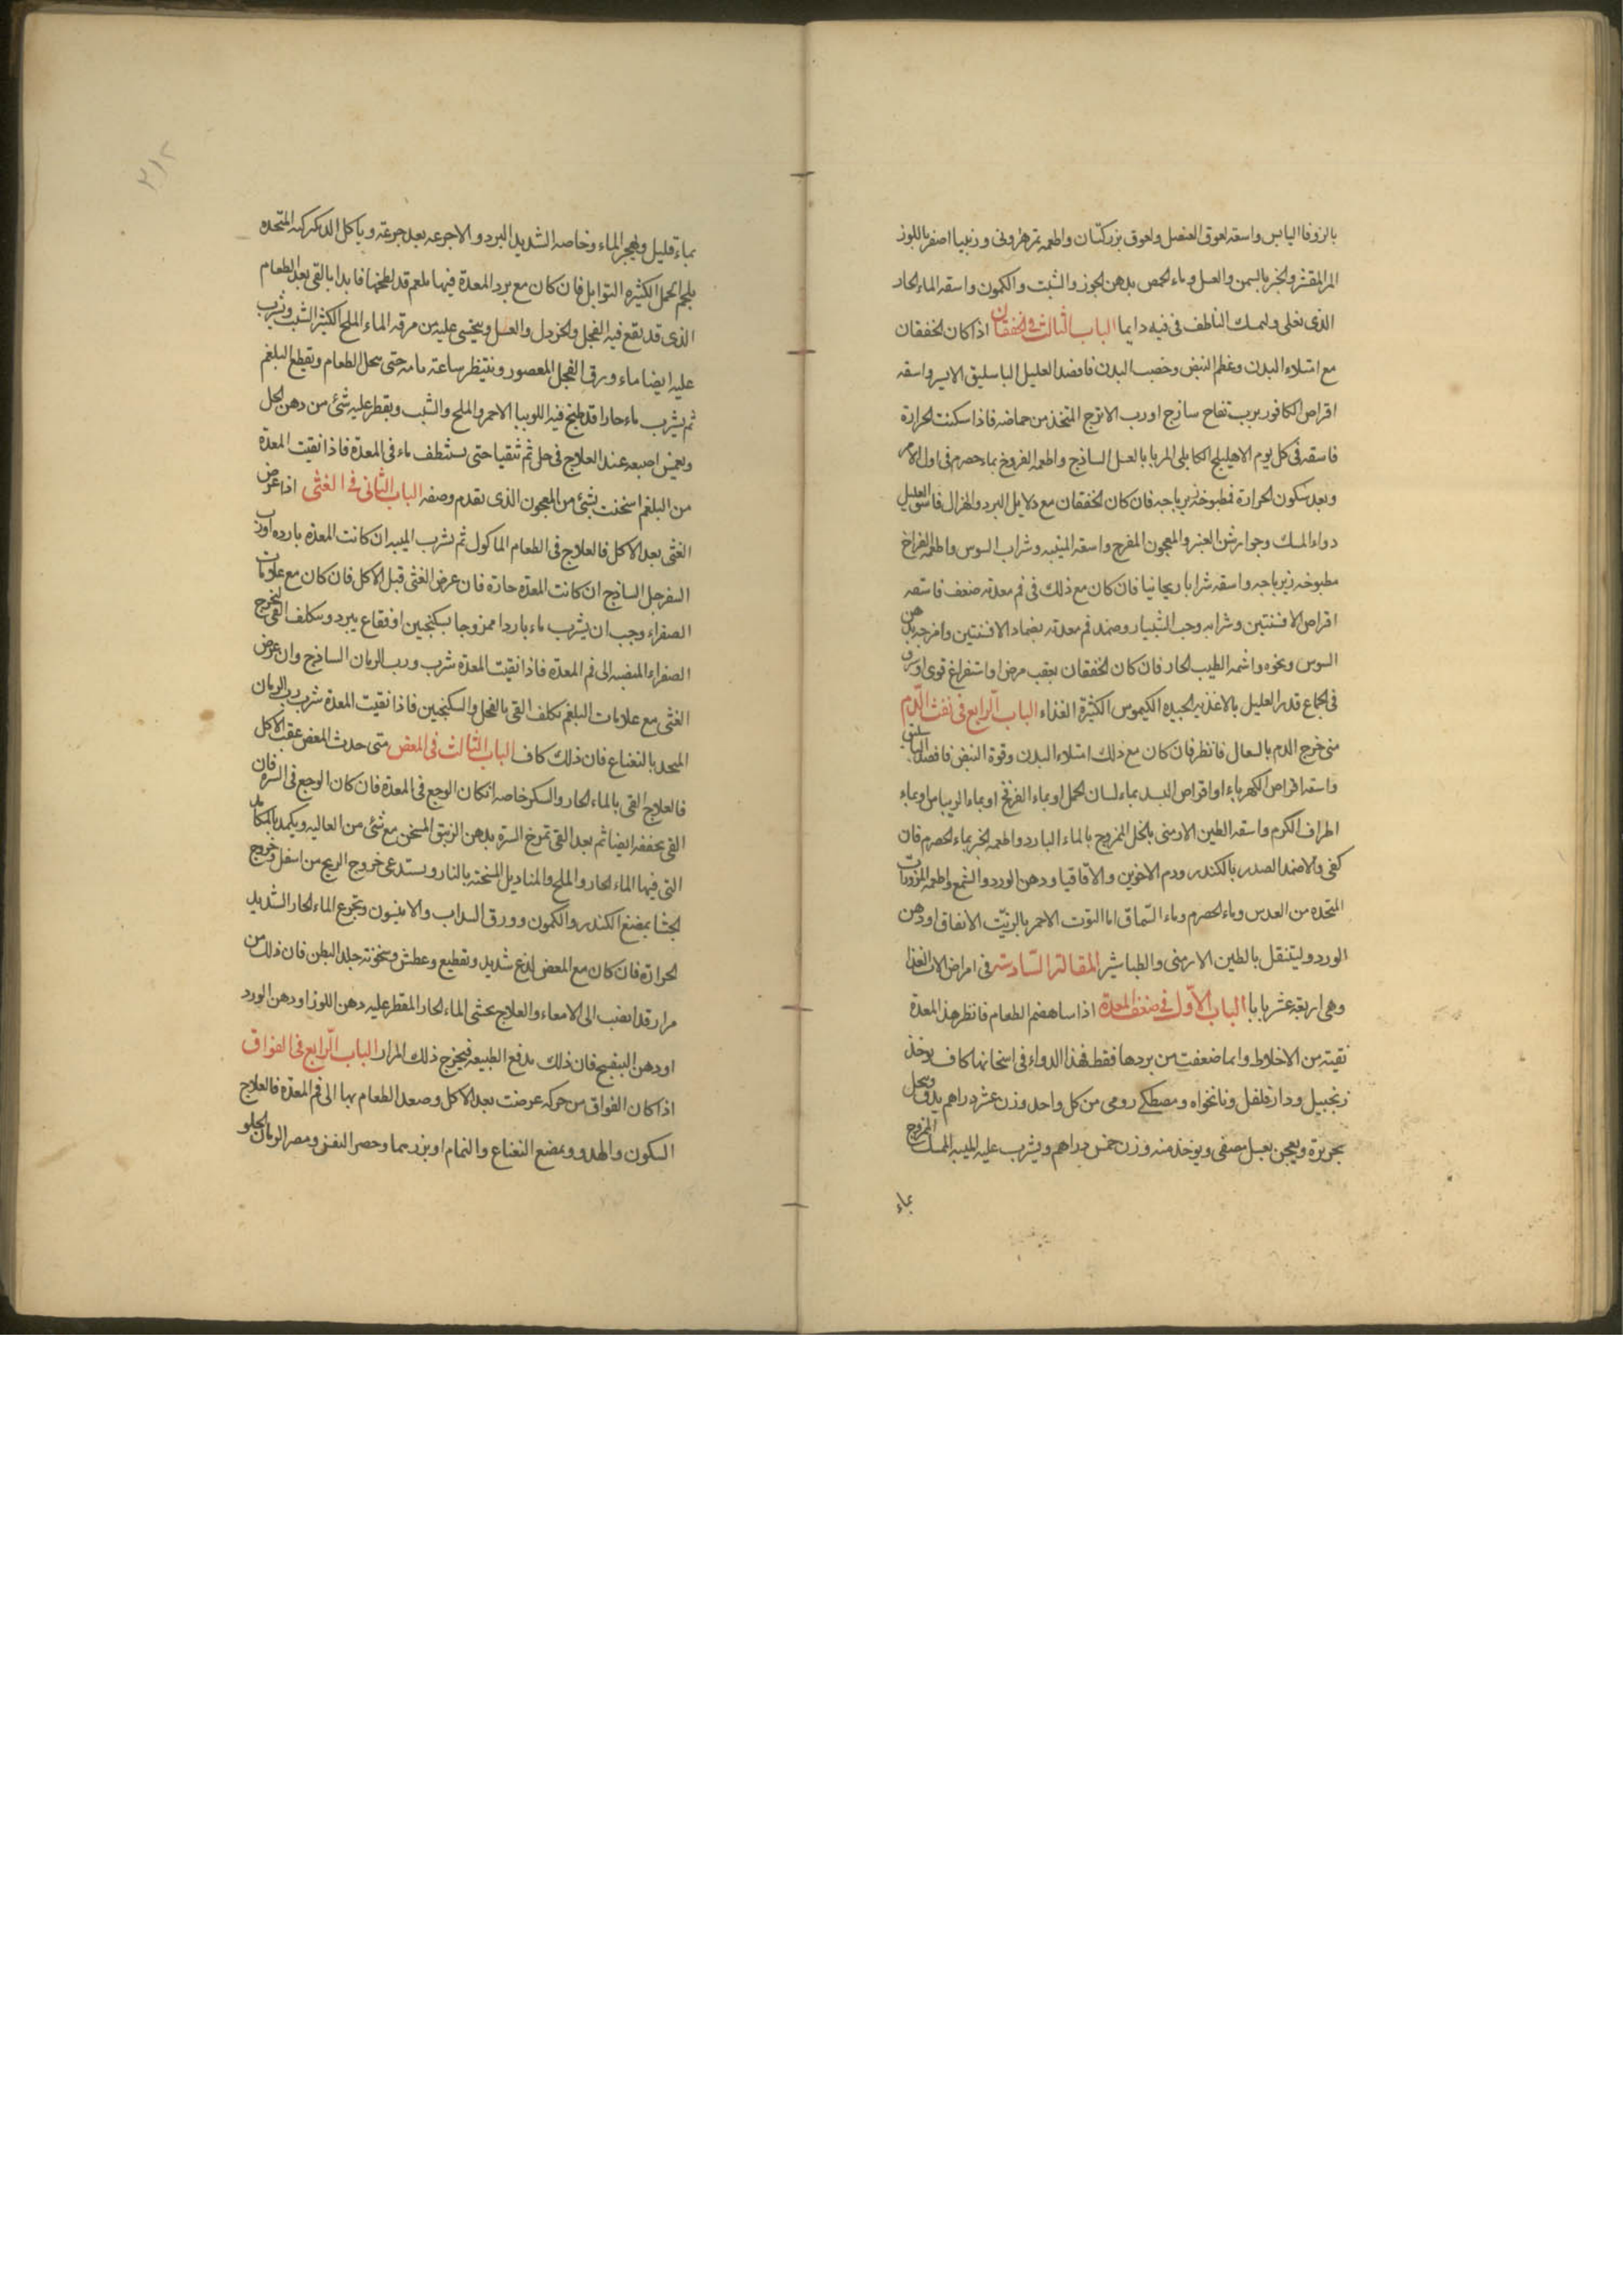 بالزوفا اليابس واسقه لعوق العنصل ولعوق بزركتان واطعمه تمر هزونى وزبيبا اصفر باللوز
المر المقشر والخبز بالسمن والعسل وماء الحمص بدهن الجوز والشبت والكمون واسقه الماء الحار
الذى تغلى وليمسك الناطف فى فيه دايما الباب الثالث فى الخفقان اذا كان الخفقان
مع امتلاء البدن وعظم النبض وخصب البدن فافصد العليل الباسليق الايسر واسقه
اقراص الكافور برب تفاح ساذج او رب الاترج المتخذ من حماضه فاذا سكنت الحرارة
فاسقه فى كل يوم الاهليلج الكابلى المربا بالعسل الساذج واطعمه الفروخ بماء حصرم فى اول الامر
وبعد سكون الحرارة فمطبوخة زيرباجه فان كان الخفقان مع دلايل البرد والهزال فاسق العليل
دواء المسك وجوارشن العنبر والمعجون المفرح واسقه الميبه وشراب السوس واطعمه الفراخ
مطبوخه زيرباجه واسقه شرابا ريحانيا فان كان مع ذلك فى فم معدته ضعف فاسقه
اقراص الافسنتين وشرابه وحب الشبيار وضمد فم معدته بضماد الافسنتين وامرخه بدهن
السوس ونحوه واشمه الطيب الحار فان كان الخفقان بعقب مرض او استفراغ قوى او سرف
فى الجماع قدبر العليل بالاغذيه الجيده الكيموس الكثيرة الغذاء الباب الرابع فى نفث الدم
متى خرج الدم بالسعال فانظر فان كان مع ذلك امتلاء البدن وقوة النبض فافصد الباسليق
واسقه اقراص الكهرباء او اقراص البسد بماء لسان الحمل او بماء الفرفخ او بماء الريباس او بماء
اطراف الكرم واسقه الطين الارمنى بالخل الممزوج بالماء البارد واطعمه الخبز بماء الحصرم فان
كفى والا ضمد الصدر بالكندر ودم الاخوين والاقاقيا ودهن الورد والشمع واطعمه المزورات
المتخذه من العدس وماء الحصرم وماء السماق اما التوت الاحمر بالزيت الانفاق او دهن
الورد وليتنقل بالطين الارمنى والطباشير المقالة السادسة فى امراض الات الغذا
وهى اربعة عشر بابا الباب الاول فى ضعف المعدة اذا ساء هضم الطعام فانظر هذ المعدة
نقيته من الاخلاط وانما ضعفت من بردها فقط فهذا الدواء فى اسخانها كاف يوخذ
زنجبيل ودارفلفل ونانخواه ومصطكى رومى من كل واحد وزن عشر دراهم يدق وينخل
بحريرة ويعجن بعسل مصفى ويوخذ منه وزن خمس دراهم ويشرب عليه الميبه الممسك الممزوج
بماء
٢١٢
بماء قليل ويهجر الماء وخاصه الشديد البرد والا جرعه بعد جرعة وياكل الدكركه المتخذه
بلحم الحمل الكثيره التوابل فان كان مع برد المعدة فيها بلغم قد لطخها فابدا بالقى بعد الطعام
الذى قد يقع فيه الفجل والخردل والعسل ويتحسى عليه من مرقة الماء الملح الكثير الشبت ويشرب
عليه ايضا ماء ورق الفجل المعصور وينتظر ساعة تامه حتى ينحل الطعام ويقطع البلغم
ثم يشرب ماء حارا قد طبخ فيه اللوبيا الاحمر والملح والشبت ويقطر عليه شئ من دهن الحل
ويغمس اصبعه عند العلاج فى حل ثم تتقيا حتى يستنظف ماء فى المعدة فاذا نقيت المعدة
من البلغم اسخنت بشئ من المعجون الذى تقدم وصفه الباب الثانى فى الغثى اذا عرض
الغثى بعد الاكل فالعلاج فى الطعام الماكول ثم يشرب الميبه ان كانت المعدة بارده او رب
السفرجل الساذج ان كانت المعدة حارة فان عرض الغثى قبل الاكل فان كان مع علامات
الصفراء وجب ان يشرب ماء باردا ممزوجا بسكنجبين او فقاع يبرد وتكلف القى لتخرج
الصفراء المنصبه الى فم المعدة فاذا نقيت المعدة شرب ورب الرمان الساذج وان عرض
الغثى مع علامات البلغم تكلف القى بالفجل والسكنجبين فاذا نقيت المعدة شرب رب الرمان
المتخذ بالنعناع فان ذلك كاف الباب الثالث فى المغص متى حدث المغص عقب الاكل
فالعلاج القى بالماء الحار والسكر خاصه ان كان الوجع فى المعدة فان كان الوجع فى السره فان
القى يخففه ايضا ثم بعد القى تمرخ السرة بدهن الزنبق المسخن مع شئ من الغاليه ويكمد بالمكامد
التى فيها الماء الحار والملح والمناديل المسخنه بالنار ويستدعى خروج الريح من اسفل وخروج
الجشا بمضغ الكندر والكمون وورق السداب والانيسون وتجرع الماء الحار الشديد
الحرارة فان كان مع المغص لذع شديد وتقطيع وعطش وسخونة جلد البطن فان ذلك من
مرار قد انصب الى الامعاء والعلاج بحشى الماء الحار المقطر عليه دهن اللوز او دهن الورد
او دهن البنفسج فان ذلك يدفع الطبيعه فيخرج ذلك المرار الباب الرابع فى الفواق
اذا كان الفواق من حركه عرضت بعد الاكل وصعد الطعام بها الى فم المعدة فالعلاج
السكون والهدو ومضغ النعناع والنمام او بزريهما وحصر النفس ومص الرمان الحلو